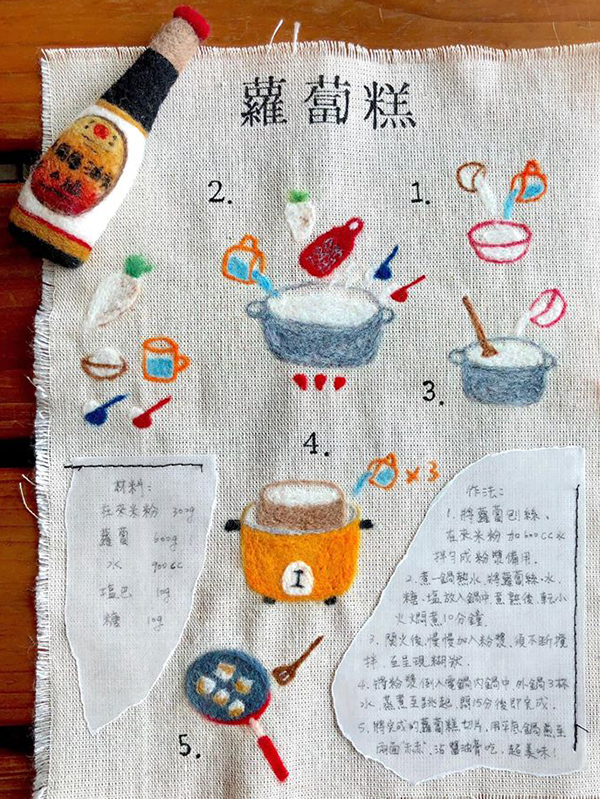 蘿蔔糕
2.
1.
3.
4.
×3
I
5.
材料:
在來米粉 300g
蘿蔔 600g
水 900cc
塩巴 10g
糖 10g
作法:
1. 將蘿蔔刨絲、
在來米粉加600cc水
拌勻成粉漿備用.
2. 煮一鍋熱水,將蘿蔔絲、水、
糖、塩放入鍋中煮熟後,転小
火燜煮10分鐘
3. 關火後,慢慢加入粉漿,須不斷攪
拌,至呈現糊狀.
4. 將粉漿倒入電鍋內鍋中,外鍋3杯
水,蒸煮至跳起,悶15分後即完成.
5. 將完成的蘿蔔糕切片,用平底鍋煎至
兩面赤赤,沾醬油膏吃,超美味!